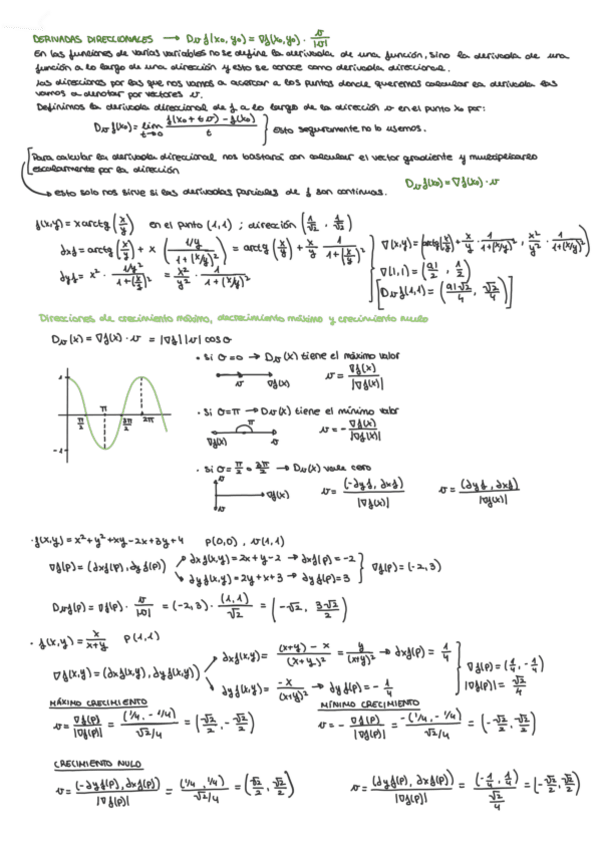 DERIVADAS DIRECCIONALES → Dv f(x₀, y₀) = ∇f(x₀, y₀) · v/|v|
En las funciones de varias variables no se define la derivada de una función, sino la derivada de una
función a lo largo de una dirección y esto se conoce como derivada direccional.
Las direcciones por las que nos vamos a acercar a los puntos donde queremos calcular la derivada las
vamos a denotar por vectores v.
Definimos la derivada direccional de f a lo largo de la dirección v en el punto x₀ por:
Dv f(x₀) = lim t→0 (f(x₀ + tv) − f(x₀))/t } esto seguramente no lo usemos.
Para calcular la derivada direccional nos bastará con calcular el vector gradiente y multiplicarlo
escalarmente por la dirección
Dv f(x₀) = ∇f(x₀) · v
→ esto solo nos sirve si las derivadas parciales de f son continuas.
f(x,y) = x arctg(x/y) en el punto (1,1) ; dirección (1/√2 , 1/√2)
∂xf = arctg(x/y) + x (1/y / 1+(x/y)²) = arctg(x/y) + x/y · 1/(1+(x/y)²)
∇(x,y) = (arctg(x/y) + x/y · 1/(1+(x/y)²) , x²/y² · 1/(1+(x/y)²))
∇(1,1) =
Dv f(1,1) =
Direcciones de crecimiento máximo, decrecimiento máximo y crecimiento nulo
Dv(x) = ∇f(x) · v = |∇f| |v| cos σ
· Si σ=0 → Dv(x) tiene el máximo valor
v ∇f(x) v = ∇f(x)/|∇f(x)|
· Si σ=π → Dv(x) tiene el mínimo valor
∇f(x) v v = − ∇f(x)/|∇f(x)|
· Si σ = π/2 o 3π/2 → Dv(x) vale cero
v ∇f(x) v = (−∂yf, ∂xf)/|∇f(x)| v = (∂yf, ∂xf)/|∇f(x)|
1
π
π/2 3π/2 2π
-1
· f(x,y) = x² + y² + xy − 2x + 3y + 4 P(0,0) , v(1,1)
∇f(P) = (∂xf(P), ∂yf(P))
∂xf(x,y) = 2x + y − 2 → ∂xf(P) = −2
∂yf(x,y) = 2y + x + 3 → ∂yf(P) = 3
∇f(P) = (−2, 3)
Dv f(P) = ∇f(P) · v/|v| = (−2, 3) · (1,1)/√2 = (−√2, 3√2/2)
· f(x,y) = x/(x+y) P(1,1)
∇f(x,y) = (∂xf(x,y), ∂yf(x,y))
∂xf(x,y) = ((x+y) − x)/(x+y)² = y/(x+y)² → ∂xf(P) = 1/4
∂yf(x,y) = −x/(x+y)² → ∂yf(P) = −1/4
∇f(P) = (1/4, −1/4)
|∇f(P)| = √2/4
MÁXIMO CRECIMIENTO
v = ∇f(P)/|∇f(P)| = (1/4, −1/4)/(√2/4) = (√2/2, −√2/2)
MÍNIMO CRECIMIENTO
v = − ∇f(P)/|∇f(P)| = −(1/4, −1/4)/(√2/4) = (−√2/2, −√2/2)
CRECIMIENTO NULO
v = (−∂yf(P), ∂xf(P))/|∇f(P)| = (1/4, 1/4)/(√2/4) = (√2/2, √2/2)
v = (∂yf(P), ∂xf(P))/|∇f(P)| = (−1/4, 1/4)/(√2/4) = (−√2/2, √2/2)